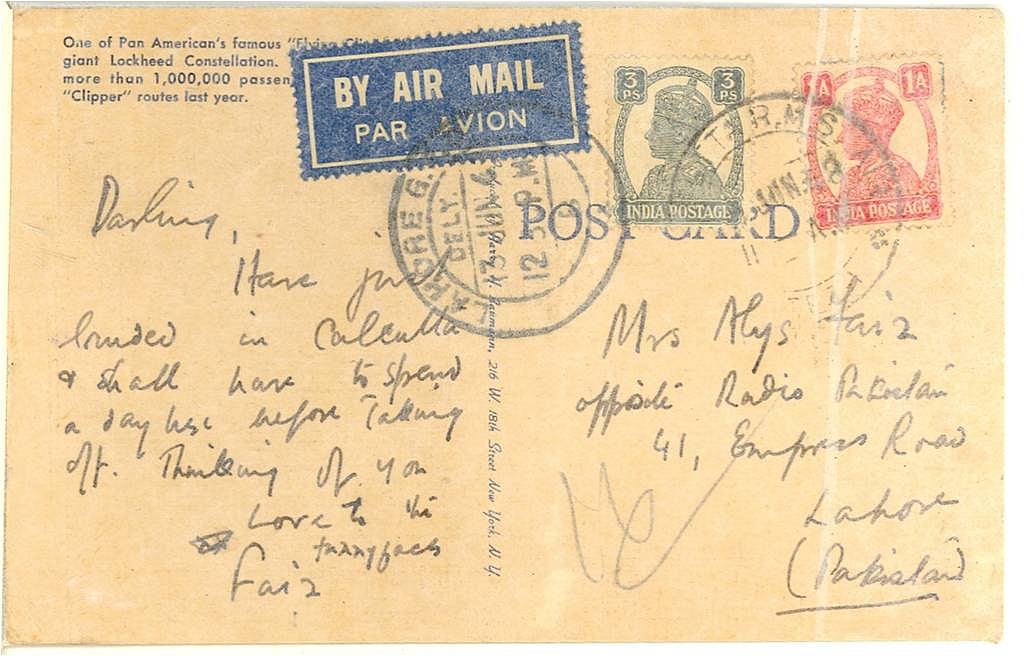 One of Pan American's famous "Flying
giant Lockheed Constellation.
more than 1,000,000 passen
"Clipper" routes last year.
BY AIR MAIL
PAR AVION
3 PS 3 PS
INDIA POSTAGE
1A 1A
INDIA POSTAGE
LAHORE G.
DELY.
13 JUN. 4
12 P.M
JUN
POST CARD
Harry H. Baumann, 216 W. 18th Street New York, N. Y.
Darling,
Have just
landed in Calcutta
& shall have to spend
a day here before taking
off. Thinking of you
Love to the
funnyfaces
Faiz
Mrs Alys Faiz
opposite Radio Pakistan
41, Empress Road
Lahore
(Pakistan)